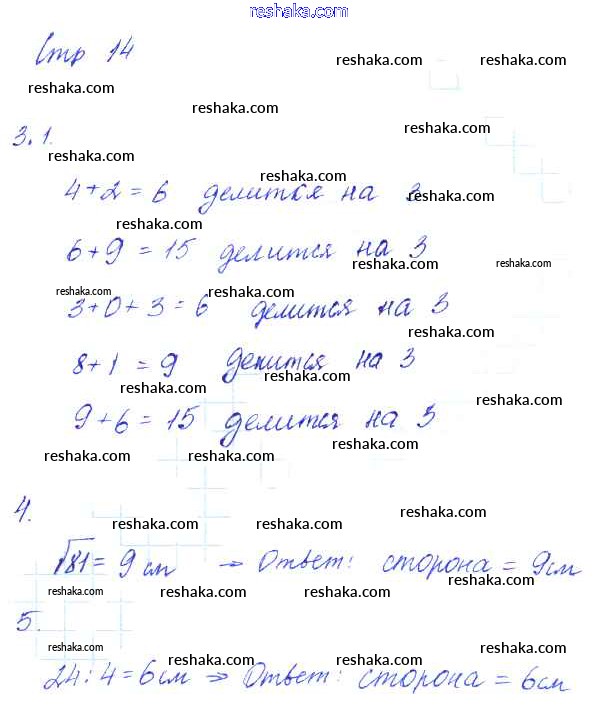 reshaka.com
Стр 14
reshaka.com
reshaka.com
reshaka.com
reshaka.com
reshaka.com
3.1.
reshaka.com
reshaka.com
4+2=6 делится на 3
reshaka.com
6+9=15 делится на 3
reshaka.com
reshaka.com
reshaka.com
reshaka.com
3+0+3=6 делится на 3
reshaka.com
8+1=9 делится на 3
reshaka.com
reshaka.com
reshaka.com
9+6=15 делится на 3
reshaka.com
reshaka.com
reshaka.com
4.
reshaka.com
reshaka.com
√81=9 см → Ответ: сторона = 9см
reshaka.com
5.
reshaka.com
reshaka.com
reshaka.com
reshaka.com
24:4=6см ⇒ Ответ: сторона = 6см
reshaka.com
reshaka.com